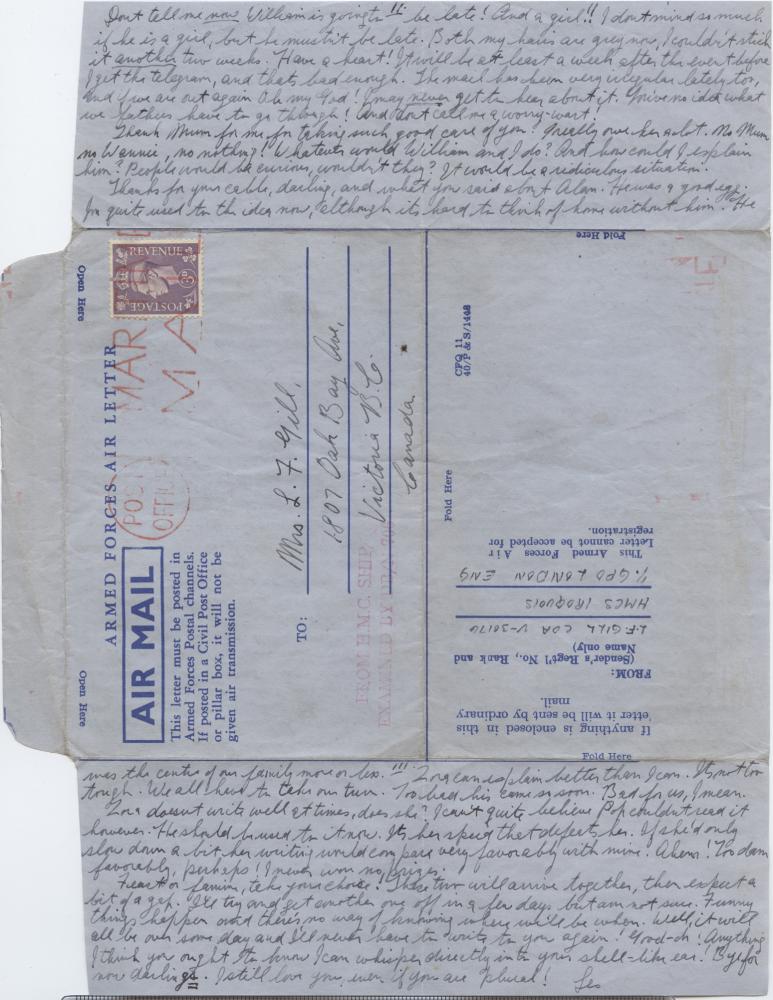 Dont tell me now William is going to!! be late! And a girl!! I dont mind so much
if he is a girl, but he mustn't be late. Both my hairs are grey now, I couldn't stick
it another two weeks. Have a heart! It will be at least a week after the event before
I get the telegram, and thats bad enough. The mail has been very irregular lately too,
and if we are out again Oh my God! I may never get to hear about it. You've no idea what
we fathers have to go through! And don't call me a worry-wart!
Thank Mum for me for taking such good care of you. I really owe her a lot. No Mum
no Wannie, no nothing! Whatever would William and I do? And how could I explain
him? People would be curious, wouldn't they? It would be a ridiculous situation.
Thanks for your cable, darling, and what you said about Alan. He was a good egg.
I'm quite used to the idea now, although its hard to think of home without him. He
Open Here
Open Here
REVENUE
3D
POSTAGE
MAR
MA
POST
OFFICE
ARMED FORCES AIR LETTER
AIR MAIL
This letter must be posted in
Armed Forces Postal channels.
If posted in a Civil Post Office
or pillar box, it will not be
given air transmission.
TO:
Mrs. L. F. Gill,
1807 Oak Bay Ave,
Victoria B.C.
Canada
FROM H.M.C. SHIP
EXAMINED BY
Fold Here
Fold Here
Fold Here
CFQ 11
40/P & S/1448
This Armed Forces Air
Letter cannot be accepted for
registration.
FROM:
(Sender's Regt'l No., Rank and
Name only)
L.F. GILL CDA V-30176
HMCS IROQUOIS
% GPO LONDON ENG
If anything is enclosed in this
letter it will be sent by ordinary
mail.
was the centre of our family more or less. !!! Zora can explain better than I can. Its not too
tough. We all have to take our turn. Too bad his came so soon. Bad for us, I mean.
Zora doesnt write well at times, does she? I can't quite believe Pop couldnt read it
however. He should be used to it now. Its her speed that defeats her. If she'd only
slow down a bit her writing would compare very favorably with mine. Ahem! Too damn
favorably, perhaps! I never won no prizes.
Feast or famine, take your choice! These two will arrive together, then expect a
bit of a gap. I'll try and get another one off in a few days but am not sure. Funny
things happen and there's no way of knowing where we'll be when. Well, it will
all be over some day and I'll never have to write to you again! Good-oh! Anything
I think you ought to know I can whisper directly into your shell-like ear! Bye for
now darlings. I still love you, even if you are plural! Les